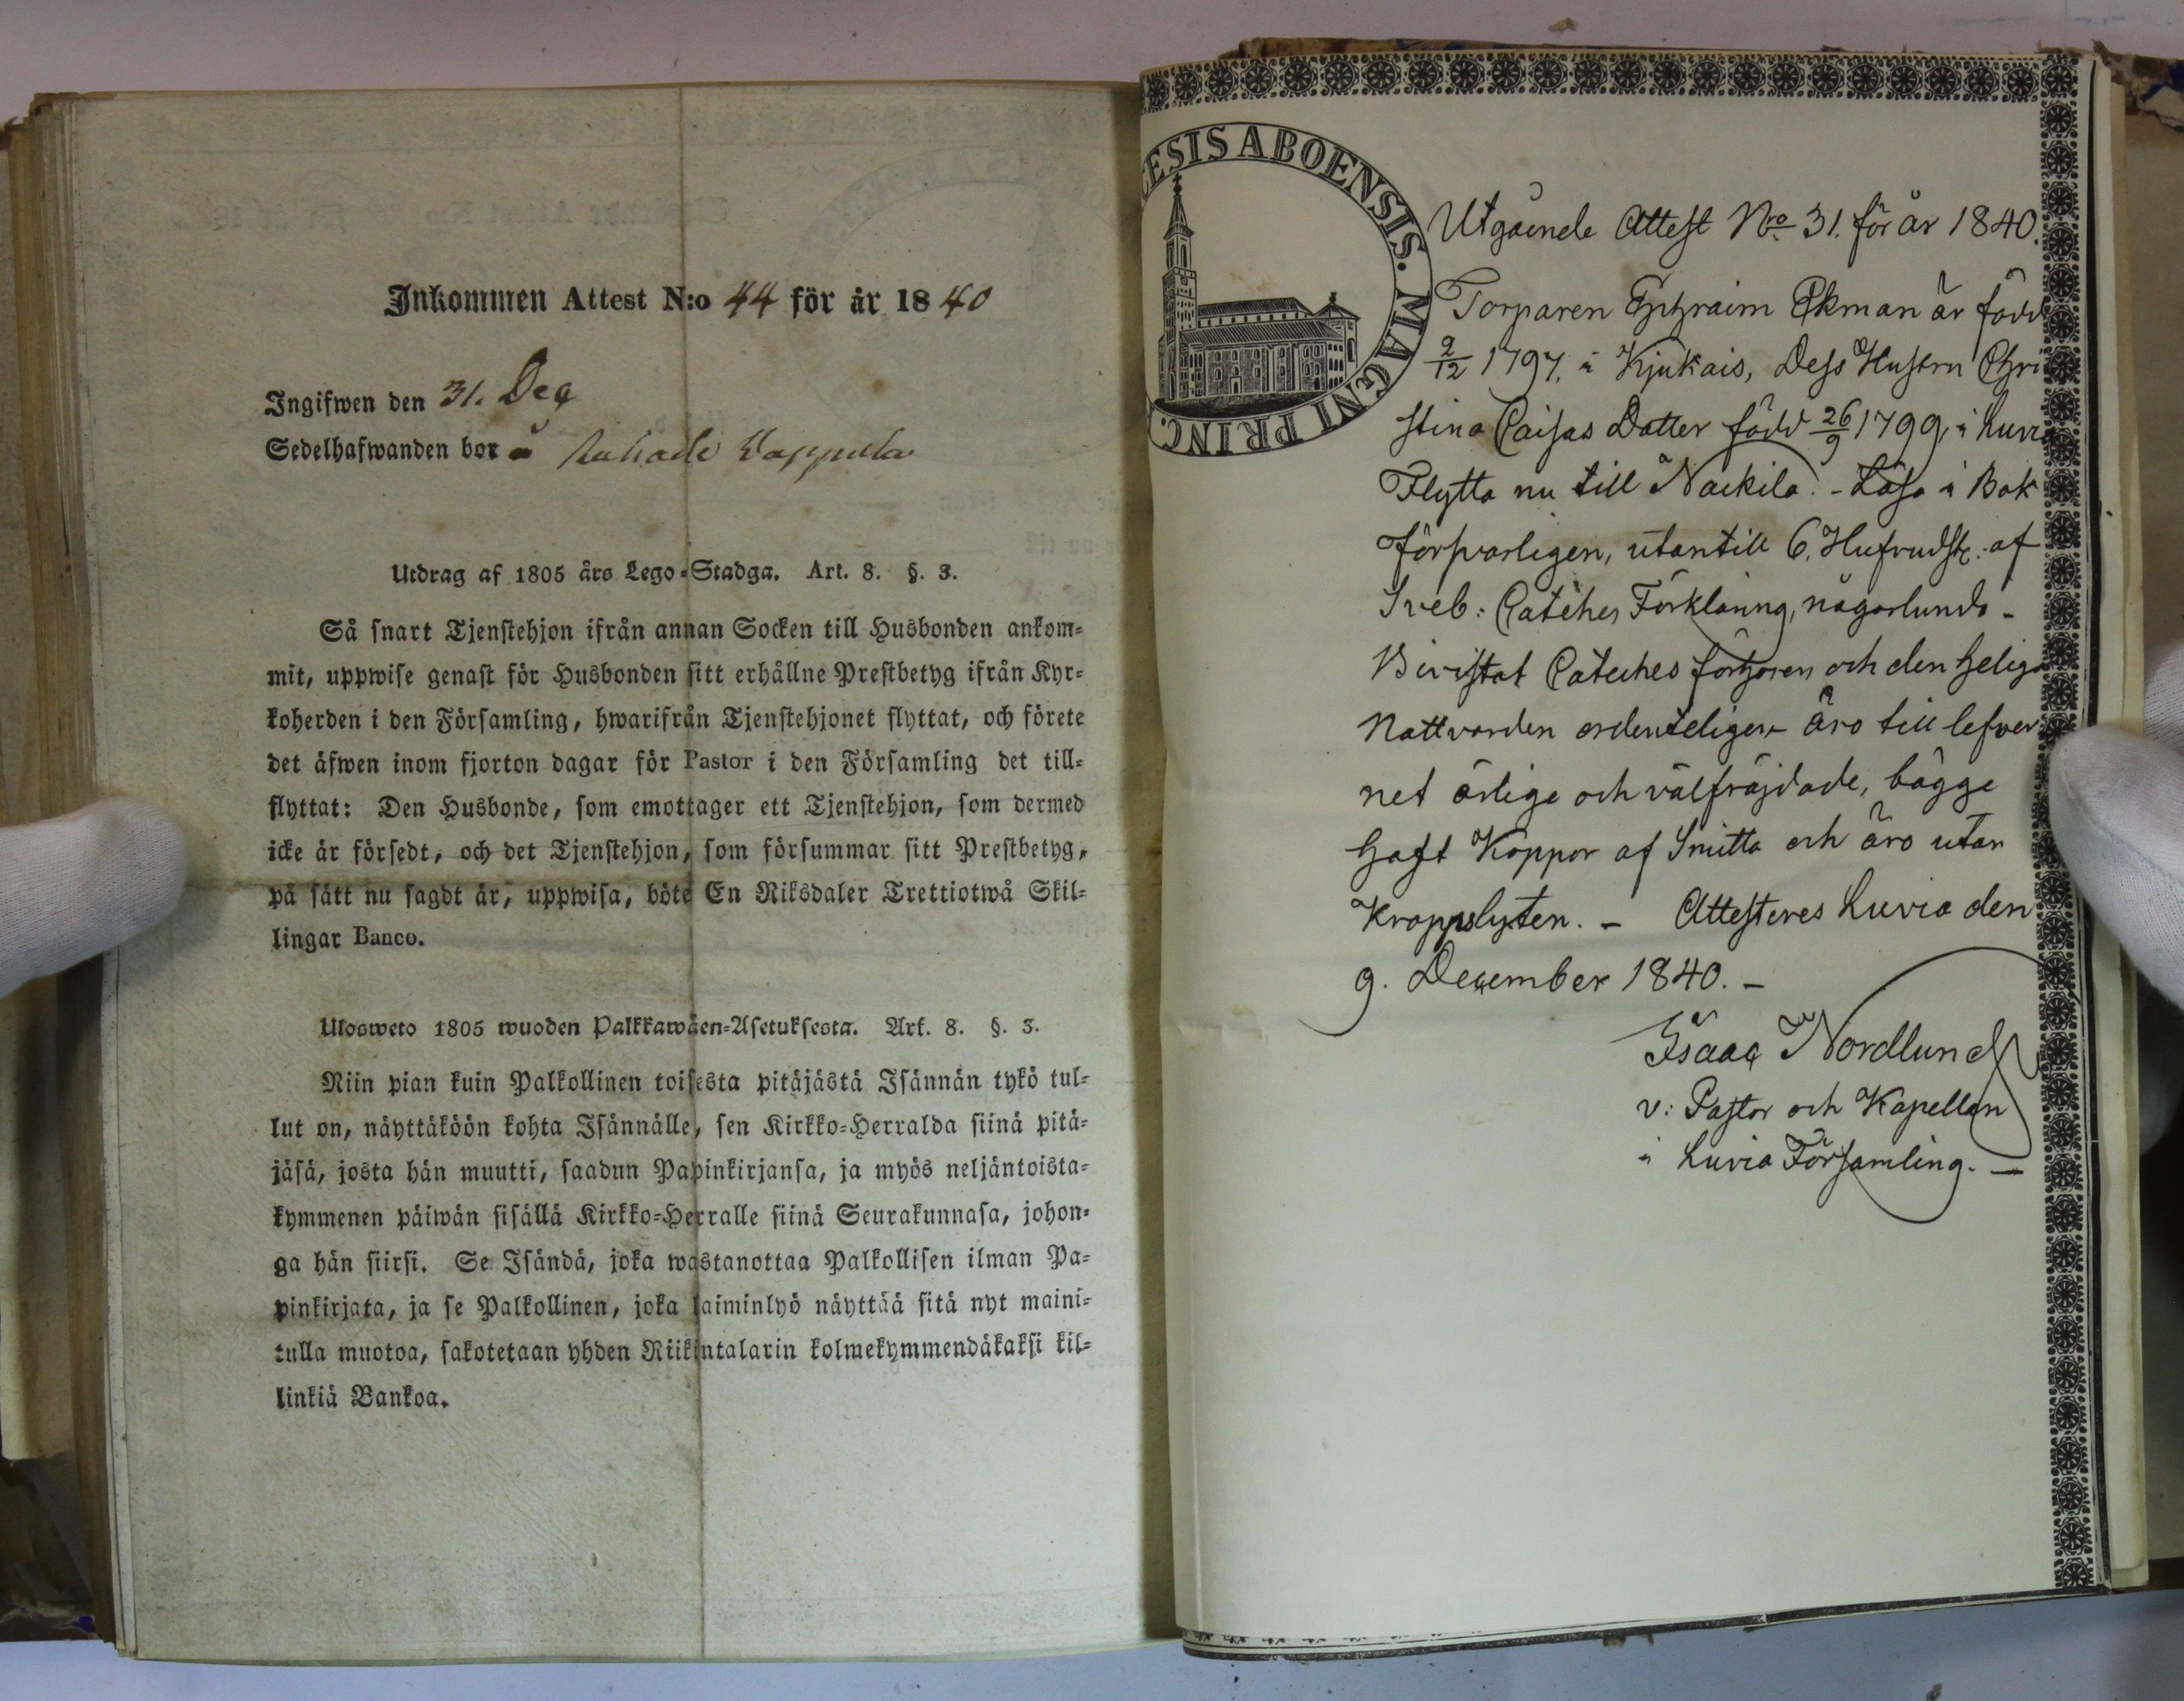 Inkommen Attest N:o 44 för år 1840
Ingifwen den 31. Dec
Sedelhafwanden bor å
Utdrag af 1805 års Lego-Stadga. Art. 8. §. 3.
Så snart Tjenstehjon ifrån annan Socken till Husbonden ankom-
mit, uppwise genast för Husbonden sitt erhållne Prestbetyg ifrån Kyr-
koherden i den Församling, hwarifrån Tjenstehjonet flyttat, och förete
det äfwen inom fjorton dagar för Pastor i den Församling det till-
flyttat: Den Husbonde, som emottager ett Tjenstehjon, som dermed
icke är försedt, och det Tjenstehjon, som försummar sitt Prestbetyg,
på sätt nu sagdt är, uppwisa, böte En Riksdaler Trettiotwå Skil-
lingar Banco.
Ulosweto 1805 wuoden Palkkawäen-Asetuksesta. Art. 8. §. 3.
Niin pian kuin Palkollinen toisesta pitäjästä Isännän tykö tul-
lut on, näyttäköön kohta Isännälle, sen Kirkko-Herralda siinä pitä-
jäsä, josta hän muutti, saadun Papinkirjansa, ja myös neljäntoista-
kymmenen päiwän sisällä Kirkko-Herralle siinä Seurakunnasa, johon-
ga hän siirsi. Se Isändä, joka wastanottaa Palkollisen ilman Pa-
pinkirjata, ja se Palkollinen, joka laiminlyö näyttää sitä nyt maini-
tulla muotoa, sakotetaan yhden Riikintalarin kolmekymmendäkaksi kil-
linkiä Bankoa.
ESIS ABOENSIS. MAGNI PRINC.
Utgående Attest Nro 31. för år 1840.
Torparen Ephraim Ekman är född
2/12 1797, i Kjukais, Dess Hustru Chri
stina Caisas Datter född 26/9 1799, i Luvia
Flytta nu till Nackila. - Läsa i Bok
försvarligen, utantill 6. Hufvudst: af
Sveb: Cateches Förklaring, någorlunda -
Bivistat Cateches förhören och den heliga
Nattvarden ordenteligen äro till lefver
net ärlige och välfräjdade, bägge
haft Koppor af Smitta och äro utan
Kroppslyten. - Attesteres Luvia den
9. December 1840. -
Isaac Nordlund
v: Pastor och Kapellan
i Luvia Församling. -